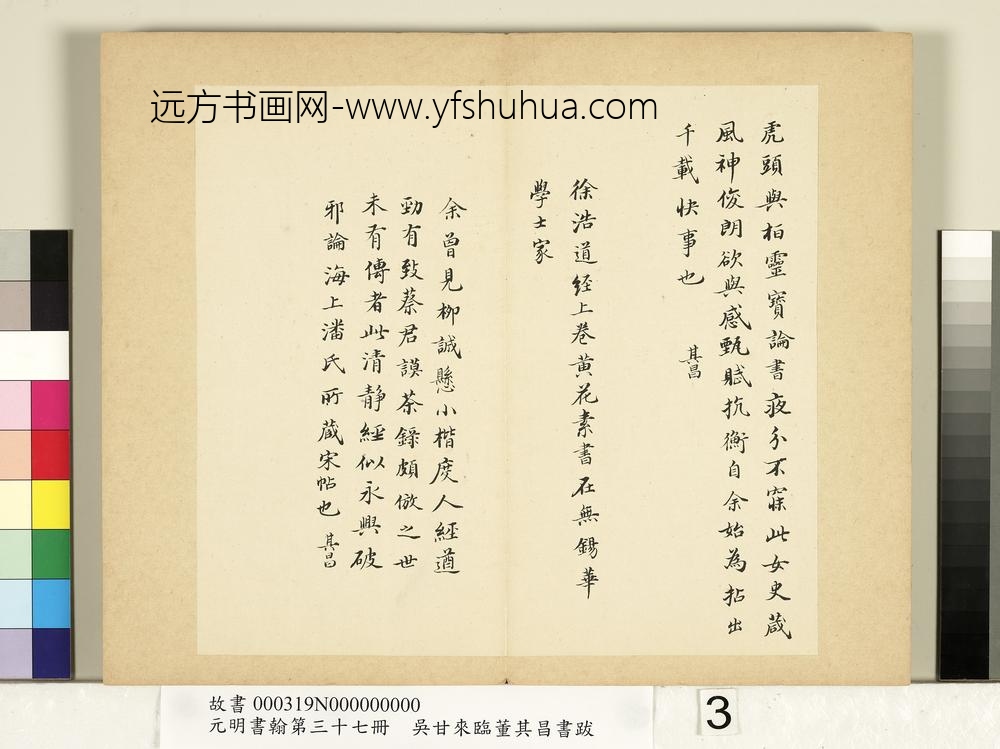 远方书画网-www.yfshuhua.com
虎頭與柏靈寶論書夜分不寐此女史蔵
風神俊朗欲與感甄賦抗衡自余始為拈出
千載快事也 其昌
徐浩道經上巻黄花素書在無錫華
學士家
余曾見柳誠懸小楷度人經遒
勁有致蔡君謨荼錄頗倣之世
未有傳者此清静經似永興破
邪論海上潘氏所蔵宋帖也 其昌
故書 000319N000000000
元明書翰第三十七冊 吳甘來臨董其昌書跋
3